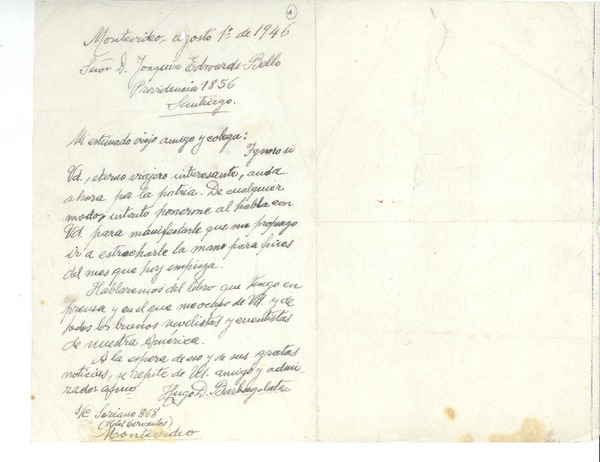 1
Montevideo, agosto 1º de 1946
Señor D. Joaquín Edwards-Bello
Providencia 1856
Santiago.
Mi estimado viejo amigo y colega:
Ignoro si
Vd., eterno viajero interesante, anda
ahora por la patria. De cualquier
modo, intento ponerme al habla con
Vd. para manifestarle que me propongo
ir a estrecharle la mano para fines
del mes que hoy empieza.
Hablaremos del libro que tengo en
prensa y en el que me ocupo de Vd. y de
todos los buenos novelistas y cuentistas
de nuestra América.
A la espera de eso y de sus gratas
noticias, se repite de Vd. amigo y admi
rador afmo
Hugo D. Barbagelata
s/c Soriano 868
(Hotel Cervantes)
Montevideo